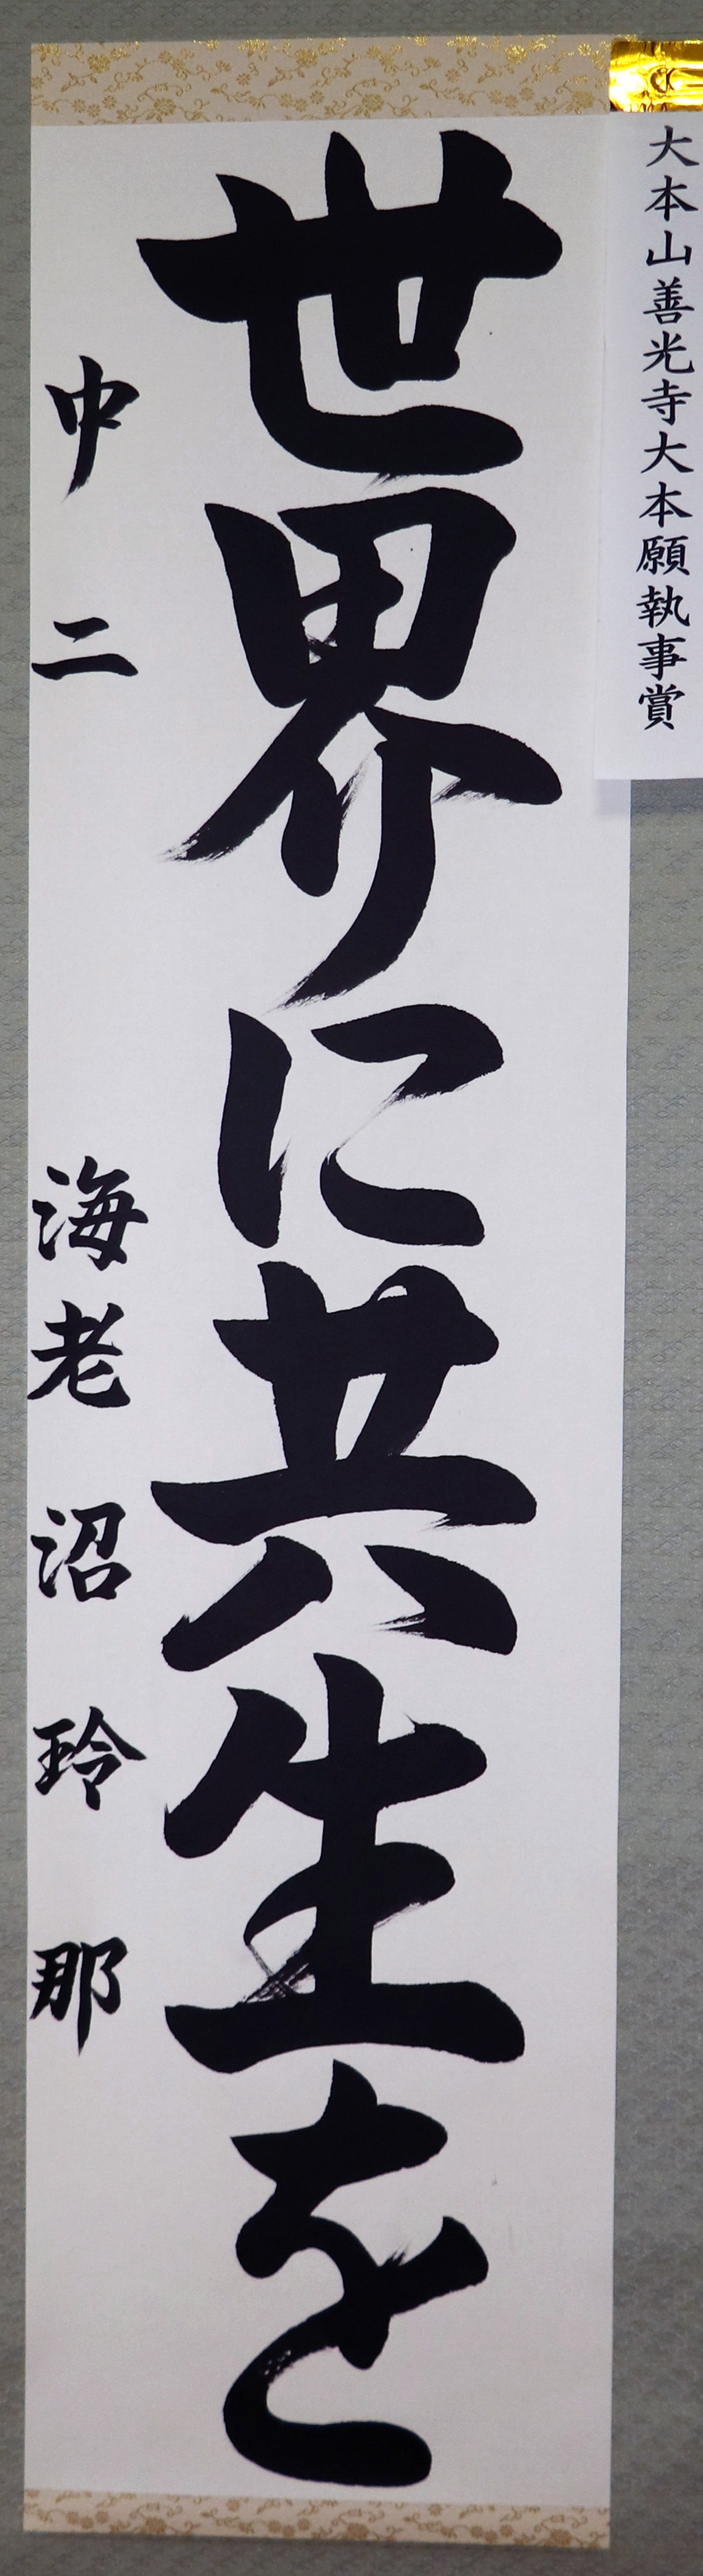 大本山善光寺大本願執事賞
世界に共生を
中二 海老沼玲那